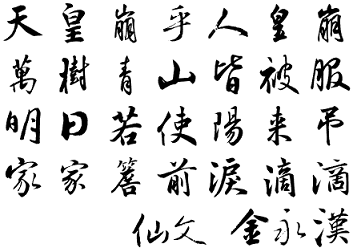 天皇崩乎人皇崩
萬樹青山皆被服
明日若使陽来吊
家家簷前淚滴滴
仙文 金永漢